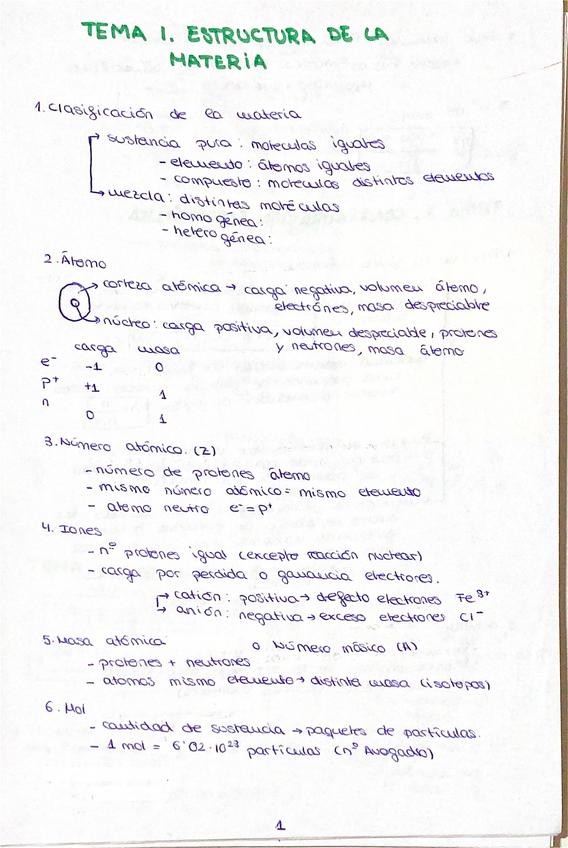 TEMA 1. ESTRUCTURA DE LA
MATERIA
1. Clasificación de la materia
sustancia pura: moleculas iguales
- elemento: átomos iguales
- compuesto: moleculas distintos elementos
mezcla: distintas moléculas
- homogénea:
- heterogénea:
2. Átomo
corteza atómica → carga negativa, volumen átomo,
electrónes, masa despreciable
núcleo: carga positiva, volumen despreciable, protones
y neutrones, masa átomo
carga masa
e⁻ -1 0
p⁺ +1 1
n 0 1
3. Número atómico. (Z)
- número de protones átomo
- mismo número atómico = mismo elemento
- atomo neutro e⁻ = p⁺
4. Iones
- nº protones igual (excepto reacción nuclear)
- carga por perdida o ganancia electrones.
catión: positiva → defecto electrones Fe³⁺
anión: negativa → exceso electrones Cl⁻
5. Masa atómica o Número másico (A)
- protones + neutrones
- atomos mismo elemento → distinta masa (isotopos)
6. Mol
- cantidad de sustancia → paquetes de partículas.
- 1 mol = 6'02·10²³ partículas (nº Avogadro)
1